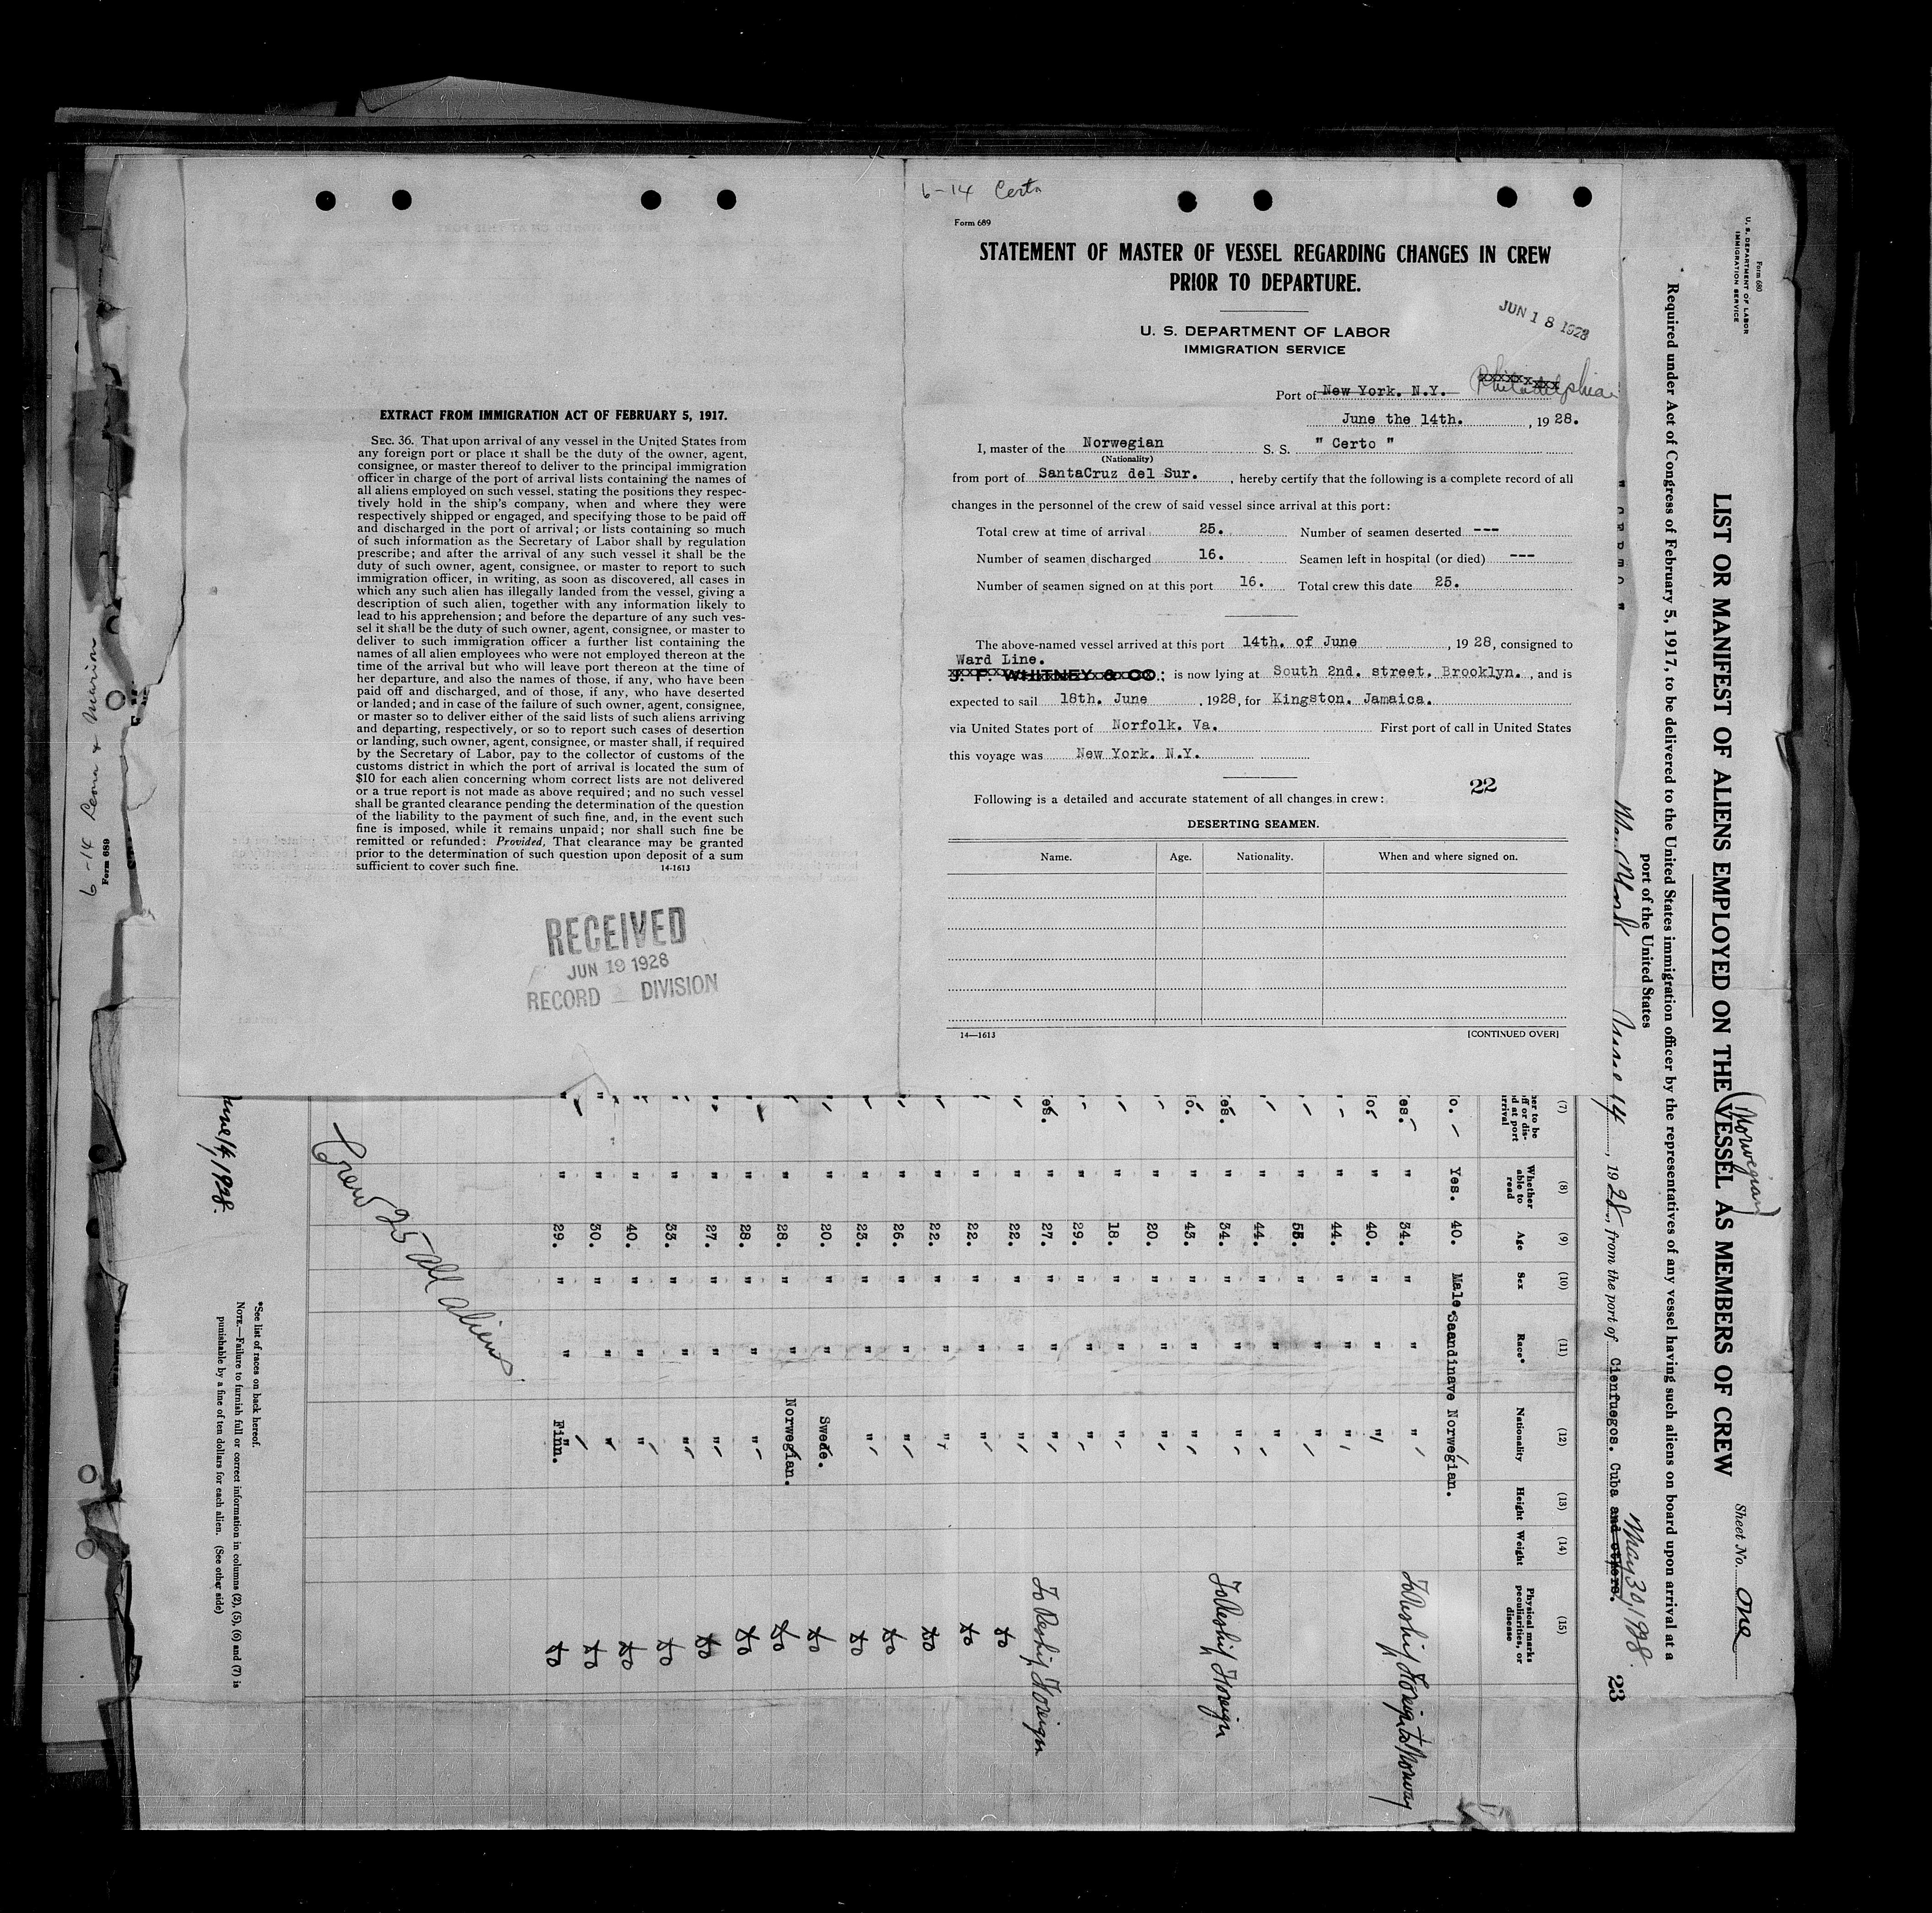 6-14 Certo
Form 689
STATEMENT OF MASTER OF VESSEL REGARDING CHANGES IN CREW
PRIOR TO DEPARTURE.
JUN 18 1928
U. S. DEPARTMENT OF LABOR
IMMIGRATION SERVICE
Port of New York. N.Y. Philadelphia
June the 14th. , 1928.
I, master of the Norwegian S. S. " Certo "
(Nationality)
from port of SantaCruz del Sur. , hereby certify that the following is a complete record of all
changes in the personnel of the crew of said vessel since arrival at this port:
Total crew at time of arrival 25. Number of seamen deserted ---
Number of seamen discharged 16. Seamen left in hospital (or died) ---
Number of seamen signed on at this port 16. Total crew this date 25.
The above-named vessel arrived at this port 14th. of June , 1928, consigned to
Ward Line.
J. F. WHITNEY & CO.; is now lying at South 2nd. street. Brooklyn. , and is
expected to sail 18th. June , 1928, for Kingston. Jamaica.
via United States port of Norfolk. Va. First port of call in United States
this voyage was New York. N.Y.
22
Following is a detailed and accurate statement of all changes in crew:
DESERTING SEAMEN.
Name. Age. Nationality. When and where signed on.
14—1613 [CONTINUED OVER]
EXTRACT FROM IMMIGRATION ACT OF FEBRUARY 5, 1917.
SEC. 36. That upon arrival of any vessel in the United States from
any foreign port or place it shall be the duty of the owner, agent,
consignee, or master thereof to deliver to the principal immigration
officer in charge of the port of arrival lists containing the names of
all aliens employed on such vessel, stating the positions they respec-
tively hold in the ship's company, when and where they were
respectively shipped or engaged, and specifying those to be paid off
and discharged in the port of arrival; or lists containing so much
of such information as the Secretary of Labor shall by regulation
prescribe; and after the arrival of any such vessel it shall be the
duty of such owner, agent, consignee, or master to report to such
immigration officer, in writing, as soon as discovered, all cases in
which any such alien has illegally landed from the vessel, giving a
description of such alien, together with any information likely to
lead to his apprehension; and before the departure of any such ves-
sel it shall be the duty of such owner, agent, consignee, or master to
deliver to such immigration officer a further list containing the
names of all alien employees who were not employed thereon at the
time of the arrival but who will leave port thereon at the time of
her departure, and also the names of those, if any, who have been
paid off and discharged, and of those, if any, who have deserted
or landed; and in case of the failure of such owner, agent, consignee,
or master so to deliver either of the said lists of such aliens arriving
and departing, respectively, or so to report such cases of desertion
or landing, such owner, agent, consignee, or master shall, if required
by the Secretary of Labor, pay to the collector of customs of the
customs district in which the port of arrival is located the sum of
$10 for each alien concerning whom correct lists are not delivered
or a true report is not made as above required; and no such vessel
shall be granted clearance pending the determination of the question
of the liability to the payment of such fine, and, in the event such
fine is imposed, while it remains unpaid; nor shall such fine be
remitted or refunded: Provided, That clearance may be granted
prior to the determination of such question upon deposit of a sum
sufficient to cover such fine. 14-1613
RECEIVED
JUN 19 1928
RECORD DIVISION
Form 680
U. S. DEPARTMENT OF LABOR
IMMIGRATION SERVICE
(Norwegian)
LIST OR MANIFEST OF ALIENS EMPLOYED ON THE VESSEL AS MEMBERS OF CREW
Sheet No. One
Required under Act of Congress of February 5, 1917, to be delivered to the United States immigration officer by the representatives of any vessel having such aliens on board upon arrival at a
port of the United States
May 30, 1928.
New York June 14 , 1928, from the port of Cienfuegos. Cuba and others.
23
(7) (8) (9) (10) (11) (12) (13) (14) (15)
Whether able to read Age Sex Race* Nationality Height Weight Physical marks peculiarities, or disease
Yes. 40. Male. Saandinave Norwegian.
" 34. " " " To Reship Foreign to Norway
" 40. " " "
" 44. " " "
" 55. " " "
" 44. " " "
" 34. " " " To Reship Foreign
" 43. " " "
" 20. " " "
" 18. " " "
" 29. " " "
" 27. " " " To Reship Foreign
" 22. " " " do
" 22. " " " do
" 22. " " " do
" 26. " " " do
" 23. " " " do
" 20. " " Swede. do
" 28. " " Norwegian. do
" 28. " " " do
" 27. " " " do
" 33. " " " do
" 40. " " " do
" 30. " " " do
" 29. " " Finn. do
Crew 25 all aliens
*See list of races on back hereof.
NOTE.—Failure to furnish full or correct information in columns (2), (5), (6) and (7) is
punishable by a fine of ten dollars for each alien. (See other side)
June 14, 1928.
6-14
Form 689